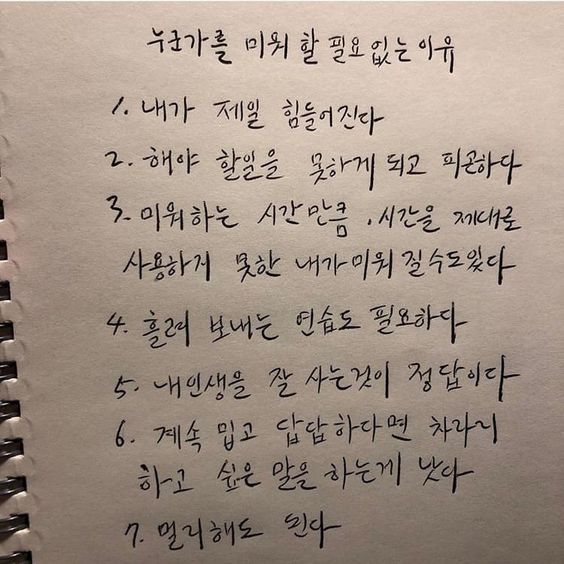 누군가를 미워 할 필요 없는 이유
1. 내가 제일 힘들어진다
2. 해야 할일을 못하게 되고 피곤하다
3. 미워하는 시간 만큼, 시간을 제대로
사용하지 못한 내가 미워 질수도있다
4. 흘려 보내는 연습도 필요하다
5. 내인생을 잘 사는것이 정답이다
6. 계속 밉고 답답하다면 차라리
하고 싶은 말을 하는게 낫다
7. 멀리해도 된다